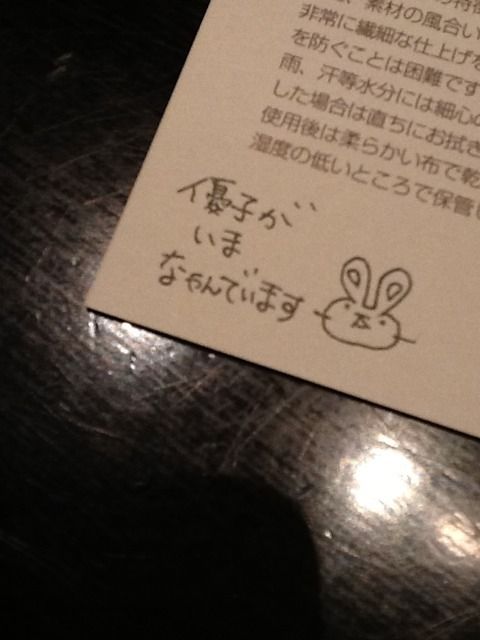 、素材の風合い
非常に繊細な仕上げを
を防ぐことは困難です
雨、汗等水分には細心の
した場合は直ちにお拭き
使用後は柔らかい布で乾
湿度の低いところで保管し
優子が
いま
なやんでいます